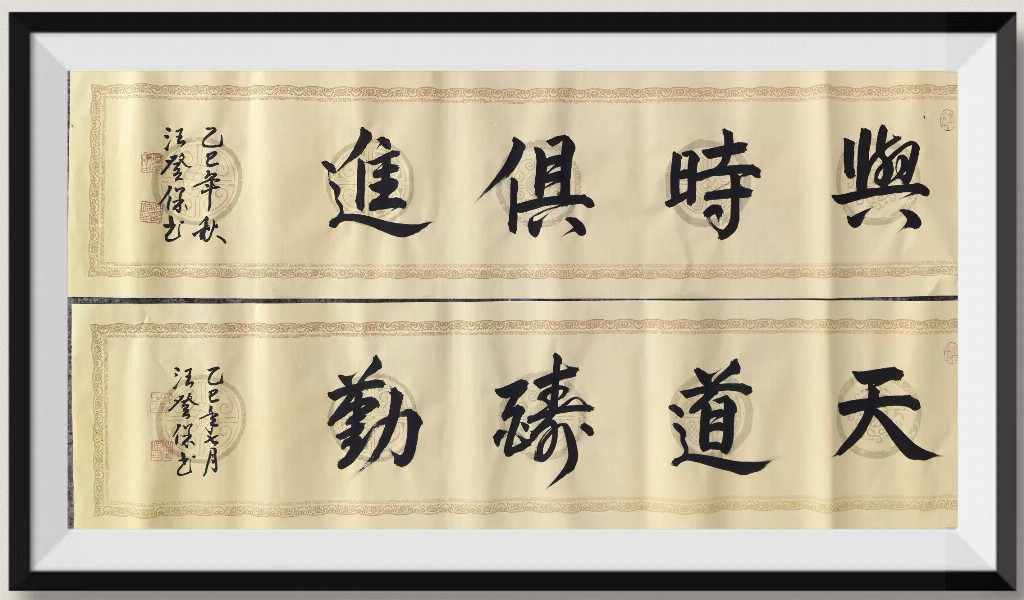 與時俱進
乙巳年秋
汪登保书
天道醻勤
乙巳年七月
汪登保书